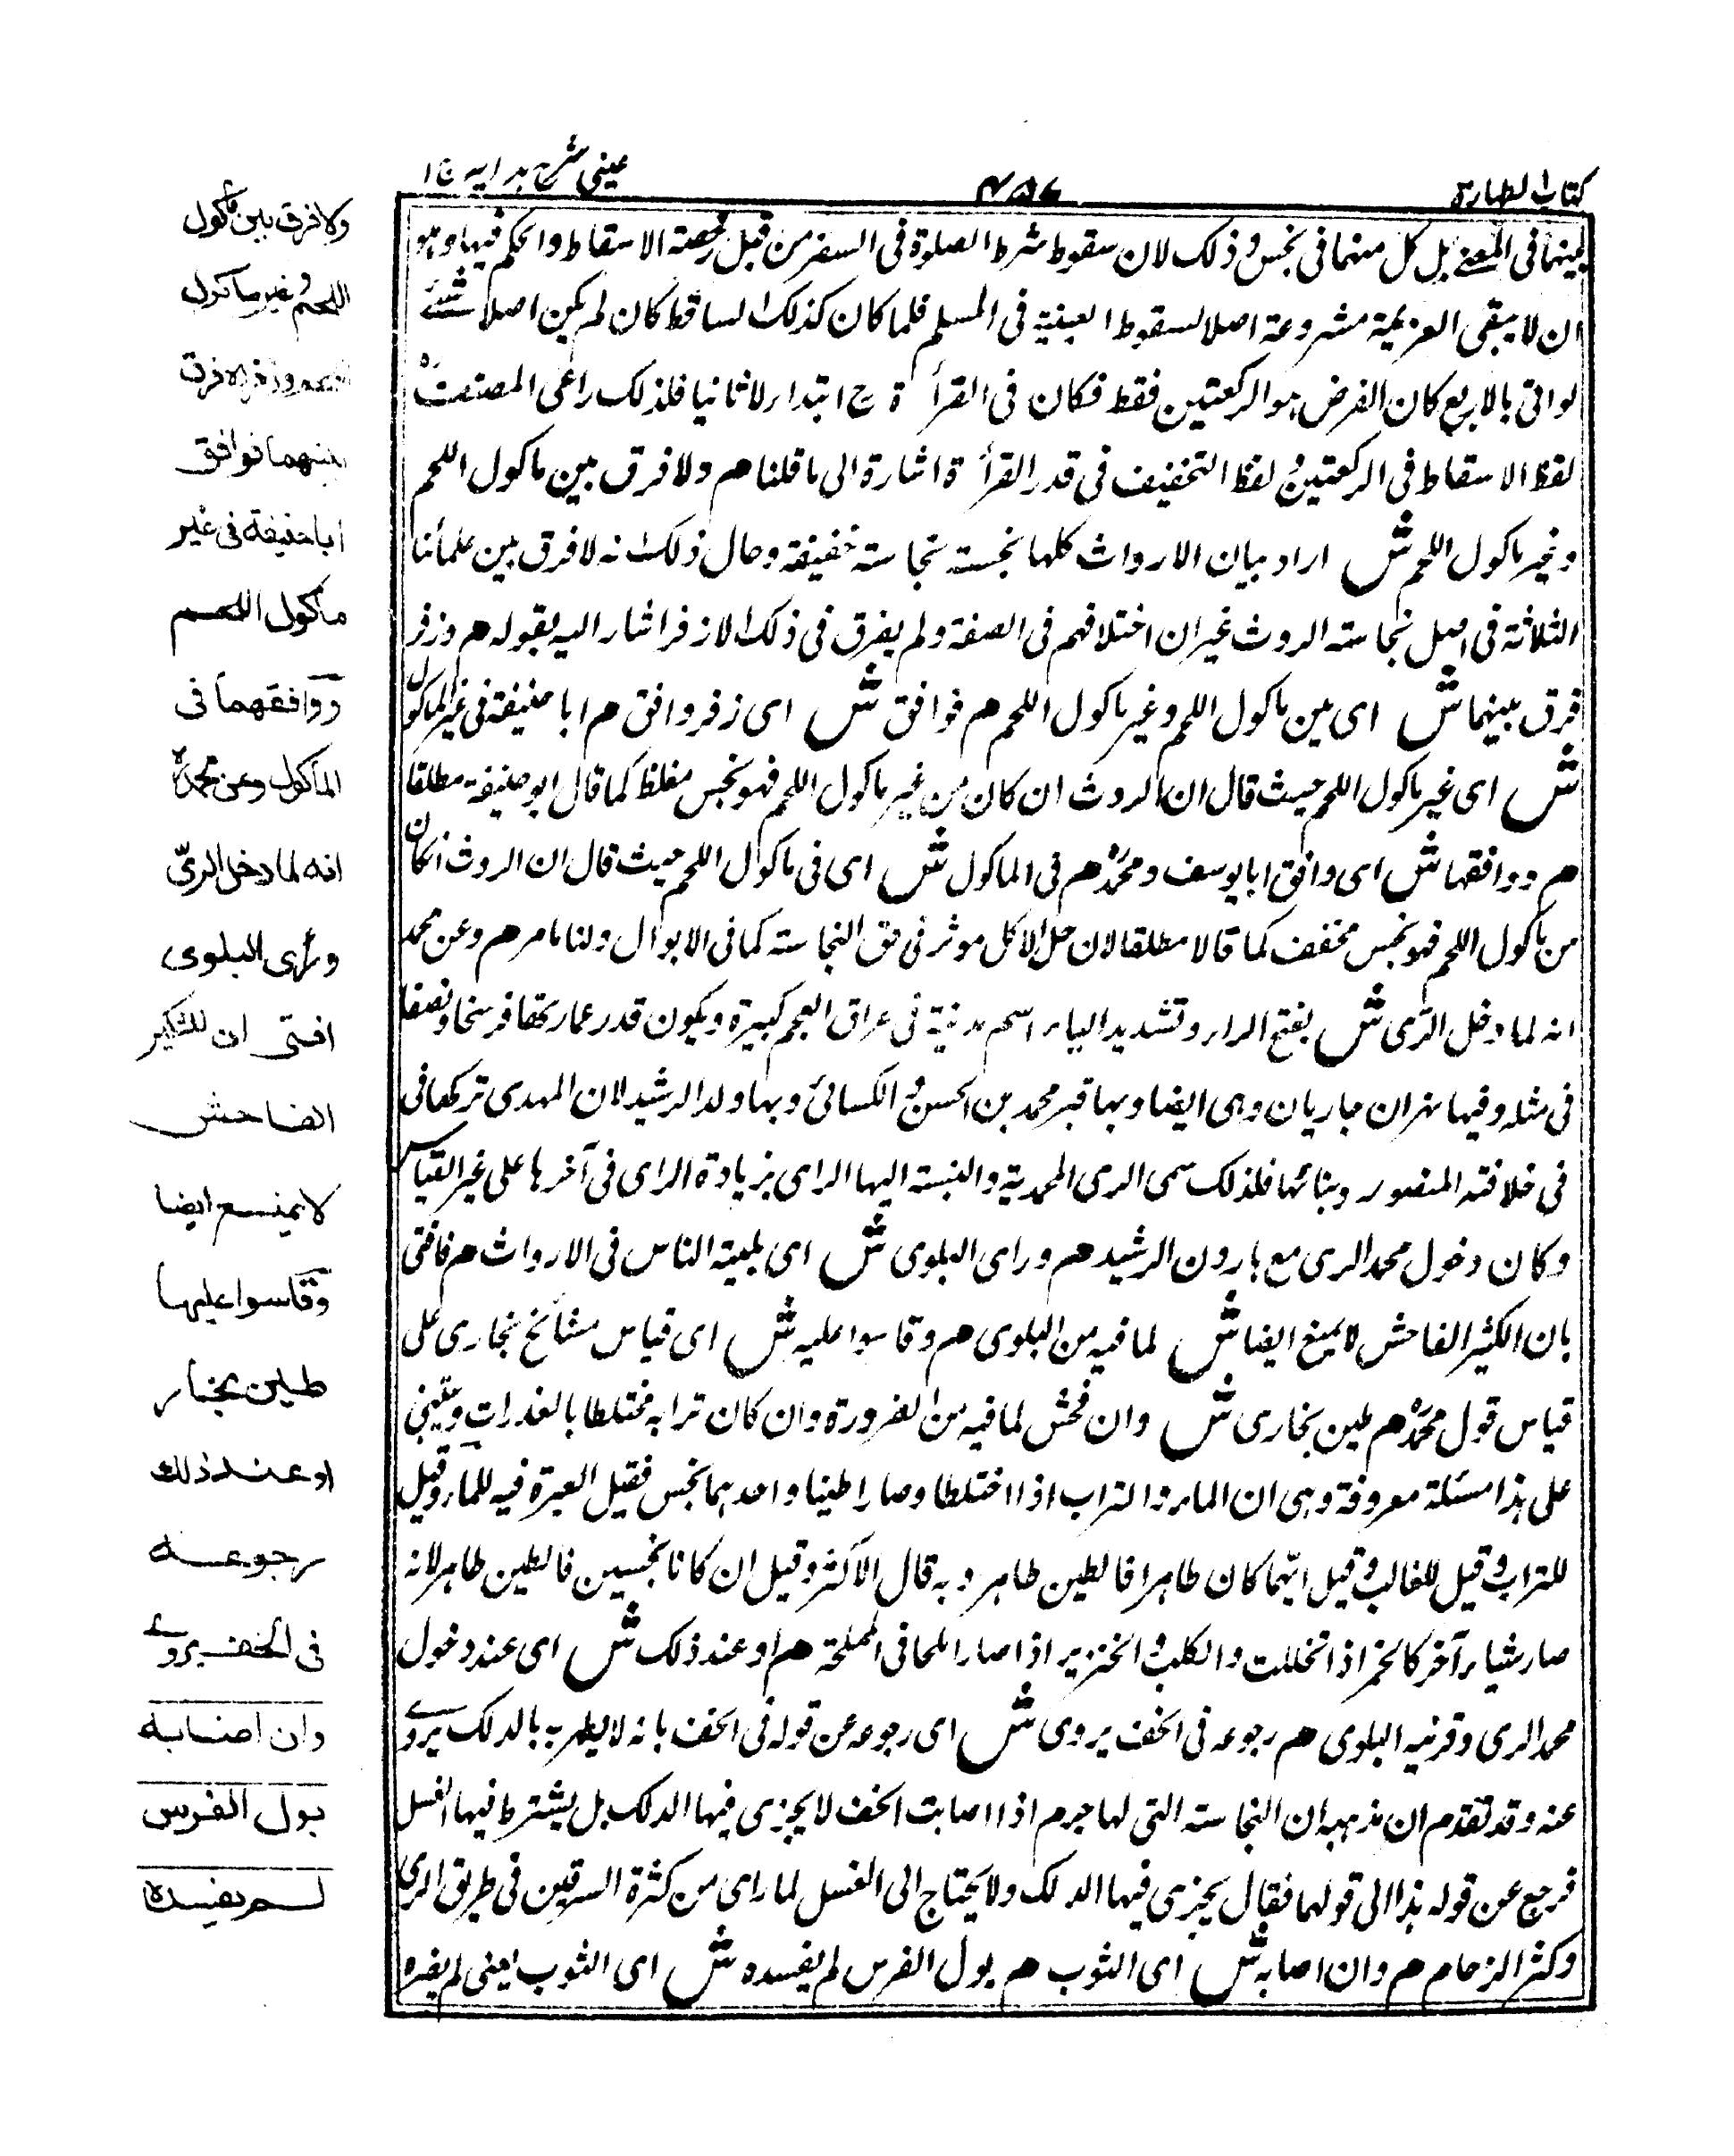 كتاب الطهارة
٤٥٧
عینی شرح ہدایہ ج ١
بينهما فى المعنى بل كل منهما فى نجس وذلك لان سقوط شرط الصلوة فى السفر من قبل رخصة الاسقاط والحكم فيها وهو
ان لا يبقى العزيمة مشروعة اصلا لسقوط العينية فى المسلم فلما كان كذلك الساقط كان لم يكن اصلا شئ
لو اتى بالاربع كان الفرض هو الركعتين فقط فكان فى القرأة ح ابتداء لا ثانيا فلذلك راعى المصنف
لفظ الاسقاط فى الركعتين و لفظ التخفيف فى قدر القرأة اشارة الى ما قلنا هم ولا فرق بين ماكول اللحم
وغير ماكول اللحم ش اراد بيان الارواث كلها نجسة نجاسة خفيفة وحال ذلك انه لا فرق بين علمأنا
الثلاثة فى اصل نجاسة الروث غير ان اختلافهم فى الصفة ولم يفرق فى ذلك الا زفر اشار اليه بقوله هم وزفر
فرق بينهما ش اى بين ماكول اللحم وغير ماكول اللحم هم فوافق ش اى زفر وافق هم ابا حنيفة فى غير الماكول
ش اى غير ماكول اللحم حيث قال ان الروث ان كان من غير ماكول اللحم فهو نجس مغلظ كما قال ابو حنيفة مطلقا
هم ووافقهما ش اى وافق ابا يوسف ومحمدؒ هم فى الماكول ش اى فى ماكول اللحم حيث قال ان الروث انكان
من ماكول اللحم فهو نجس مخفف كما قالا مطلقا لان حل الاكل موثر فى حق النجاسة كما فى الابوال ولنا ما مر هم وعن محمد
انه لما دخل الرّى ش بفتح الراء وتشديد الياء اسم مدينة فى عراق العجم كبيرة ويكون قدر عمارتها فرسخا ونصفا
فى مثله وفيها نهران جاريان وهى ايضا وبها قبر محمد بن الحسن و الكسائى وبها ولد الرشيد لان المهدى تركها فى
فى خلافته المنصور وبنائها فلذلك سمى الرى المحمدية والنسبة اليها الرازى بزيادة الزاى فى آخرها على غير القياس
وكان دخول محمد الرى مع هارون الرشيد هم وراى البلوى ش اى بلية الناس فى الارواث هم فافتى
بان الكثير الفاحش لا يمنع ايضا ش لما فيه من البلوى هم وقاسوا عليه ش اى قياس مشائخ بخارى على
قياس قول محمدؒ هم طين بخارى ش وان فحش لما فيه من الضرورة وان كان ترابه مختلطا بالعذرات ويبتنى
على هذا مسئلة معروفة وهى ان الماء والتراب اذا اختلطا وصارا طينا واحدهما نجس فقيل العبرة فيه للماء وقيل
للتراب و قيل للغالب و قيل ايّهما كان طاهرا فالطين طاهر وبه قال الاكثر وقيل ان كانا نجسين فالطين طاهر لانه
صار شياء آخر كالخمر اذا تخللت والكلب و الخنزير اذا صارا ملحا فى المملحة هم او عند ذلك ش اى عند دخول
محمد الرى وقرنيه البلوى هم رجوعه فى الخف يروى ش اى رجوعه عن قوله فى الخف بانه لا يطهر به بالدلك يروى
عنه وقد تقدم ان مذهبه ان النجاسة التى لها جرم اذا اصابت الخف لا يجزى فيها الدلك بل يشترط فيها الغسل
فرجع عن قوله هذا الى قولهما فقال يجزى فيها الدلك ولا يحتاج الى الغسل لما راى من كثرة السرقين فى طريق الرى
وكثر الزحام هم وان اصابه ش اى الثوب هم بول الفرس لم يفسده ش اى الثوب يعنى لم يفسده
ولا فرق بين ماكول
اللحم وغير ماكول
اللحم وزفرؒ فرق
بينهما فوافق
ابا حنيفة فى غير
ماكول اللحم
ووافقهما فى
المأكول وعن محمدؒ
انه لما دخل الرىّ
ورأى البلوى
افتى ان الكثير
الفاحش
لا يمنع ايضا
وقاسوا عليها
طين بخارى
او عند ذلك
رجوعه
فى الخف يروى
وان اصابه
بول الفرس
لم يفسده